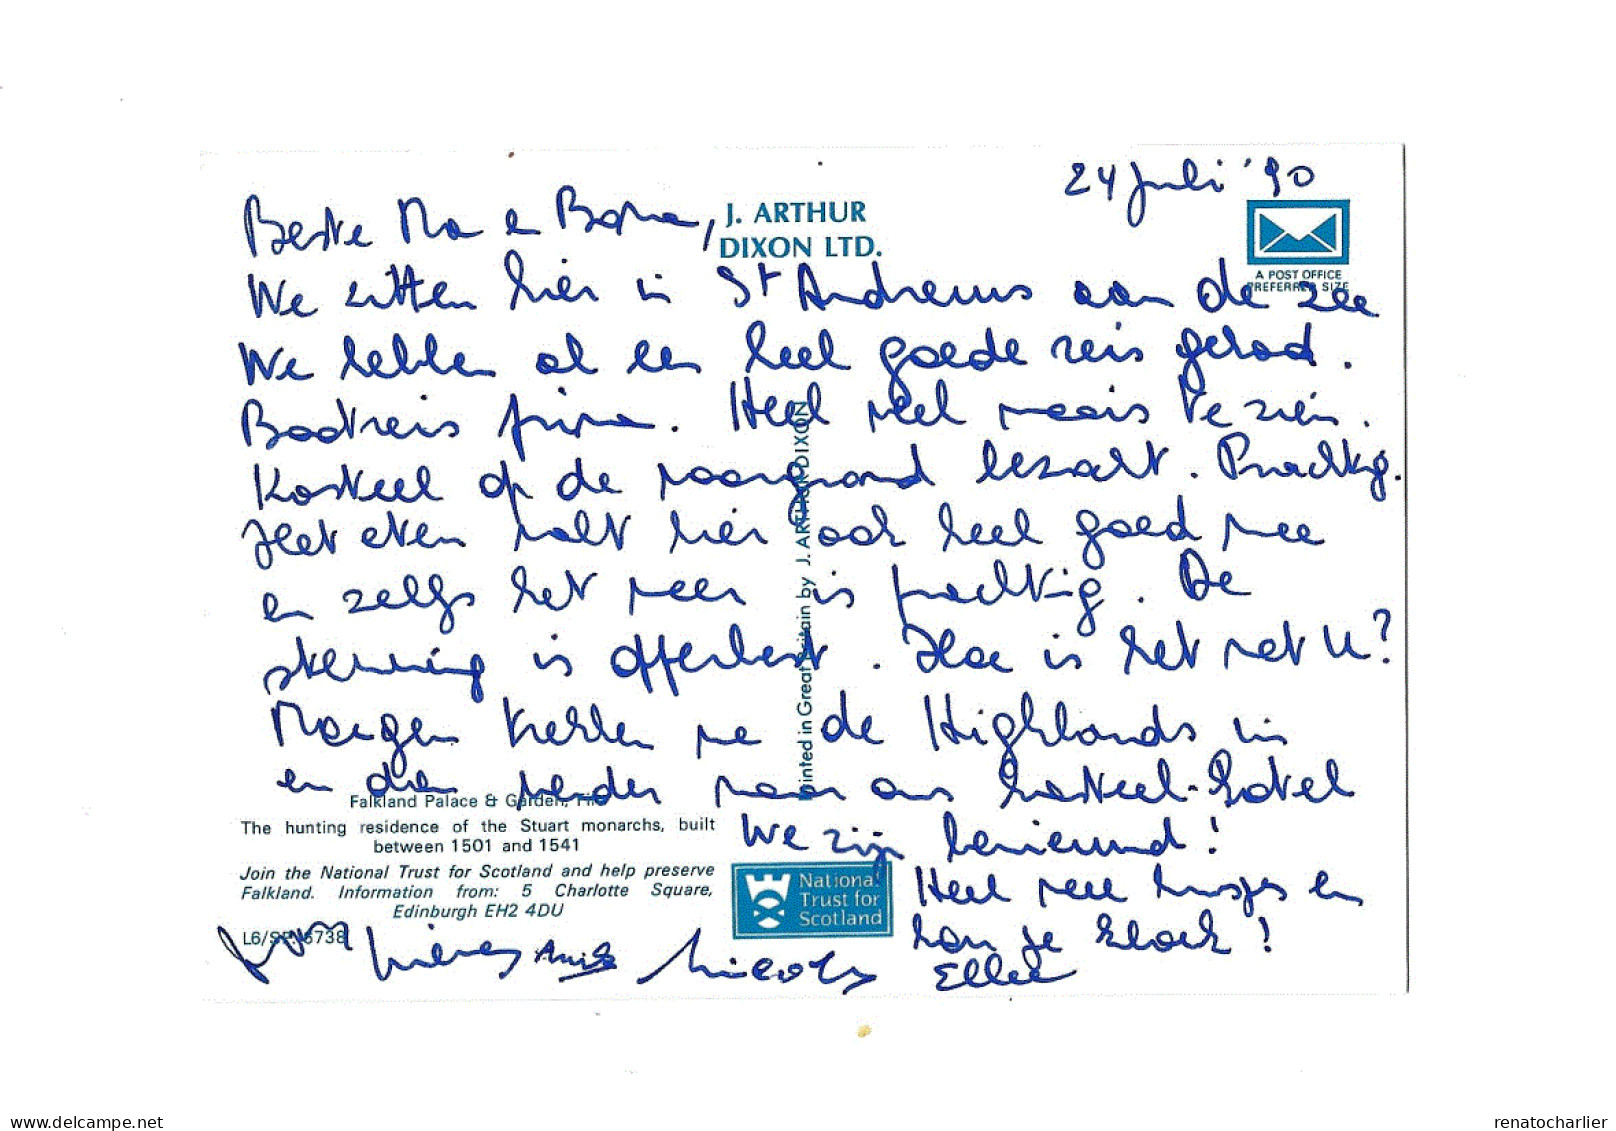 24 Juli '90
Beste Ma en Boma,
J. ARTHUR
DIXON LTD.
A POST OFFICE
PREFERRED SIZE
We zitten hier in St Andrews aan de zee
We hebben al een heel goede reis gehad.
Bootreis prima. Heel veel moois te zien.
Kasteel op de voorgrond bezocht. Prachtig.
Het eten valt hier ook heel goed mee
en zelfs het weer is prachtig. De
stemming is opperbest. Hoe is het met U?
Morgen trekken we de Highlands in
en dan verder naar ons kasteel-hotel
We zijn benieuwd!
Heel veel kusjes en
hou je kloek!
Ellie
Printed in Great Britain by J. ARTHUR DIXON
Falkland Palace & Garden, Fife
The hunting residence of the Stuart monarchs, built
between 1501 and 1541
Join the National Trust for Scotland and help preserve
Falkland. Information from: 5 Charlotte Square,
Edinburgh EH2 4DU
National
Trust for
Scotland
Nicole
delcampe.net
renatocharlier